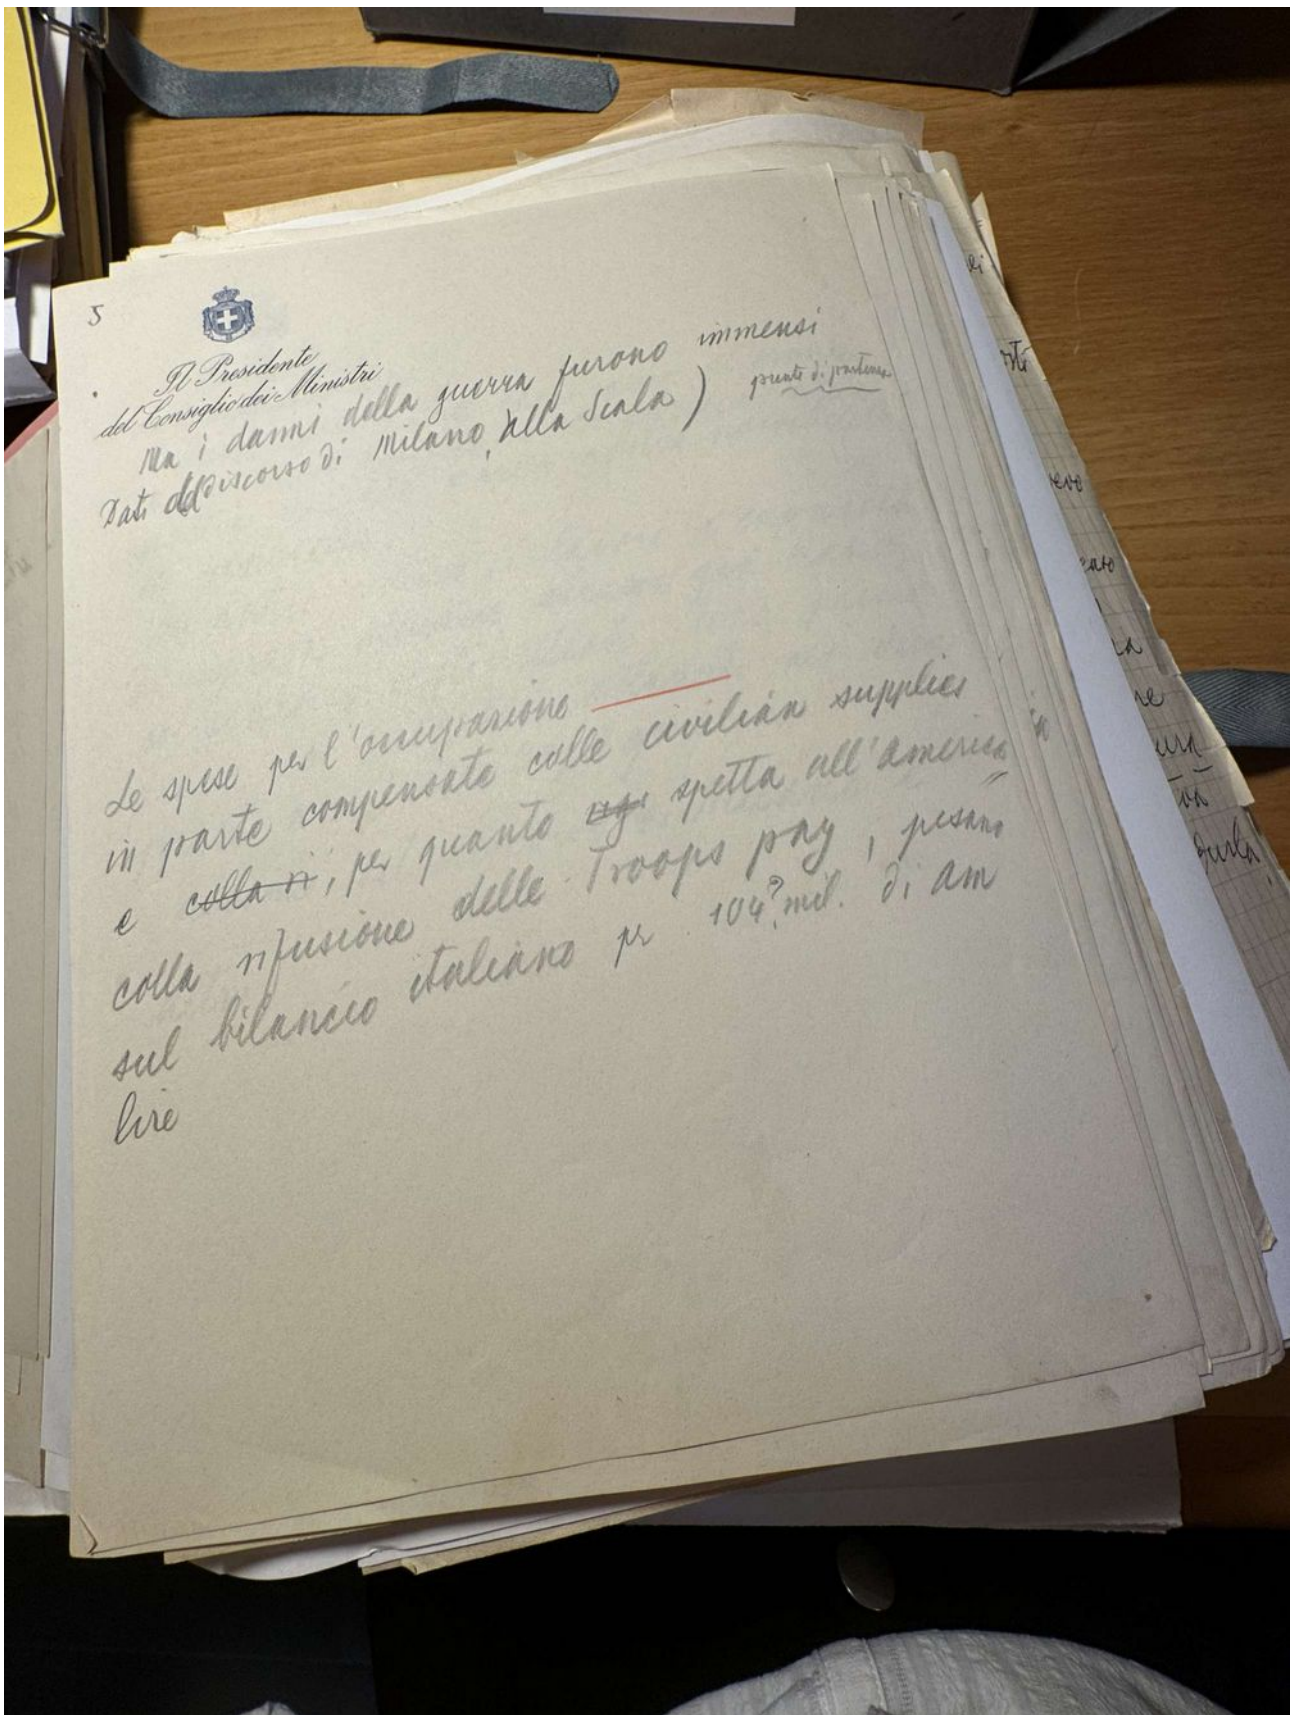 5
Il Presidente
del Consiglio dei Ministri
Ma i danni della guerra furono immensi
Dati del discorso di Milano, alla Scala) punto di partenza
Le spese per l'occupazione
in parte compensate colle civilian supplies
e colla ri, per quanto spetta all'America in
colla rifusione delle Troops pay, pesano
sul bilancio italiano per 104? mil. di am
lire